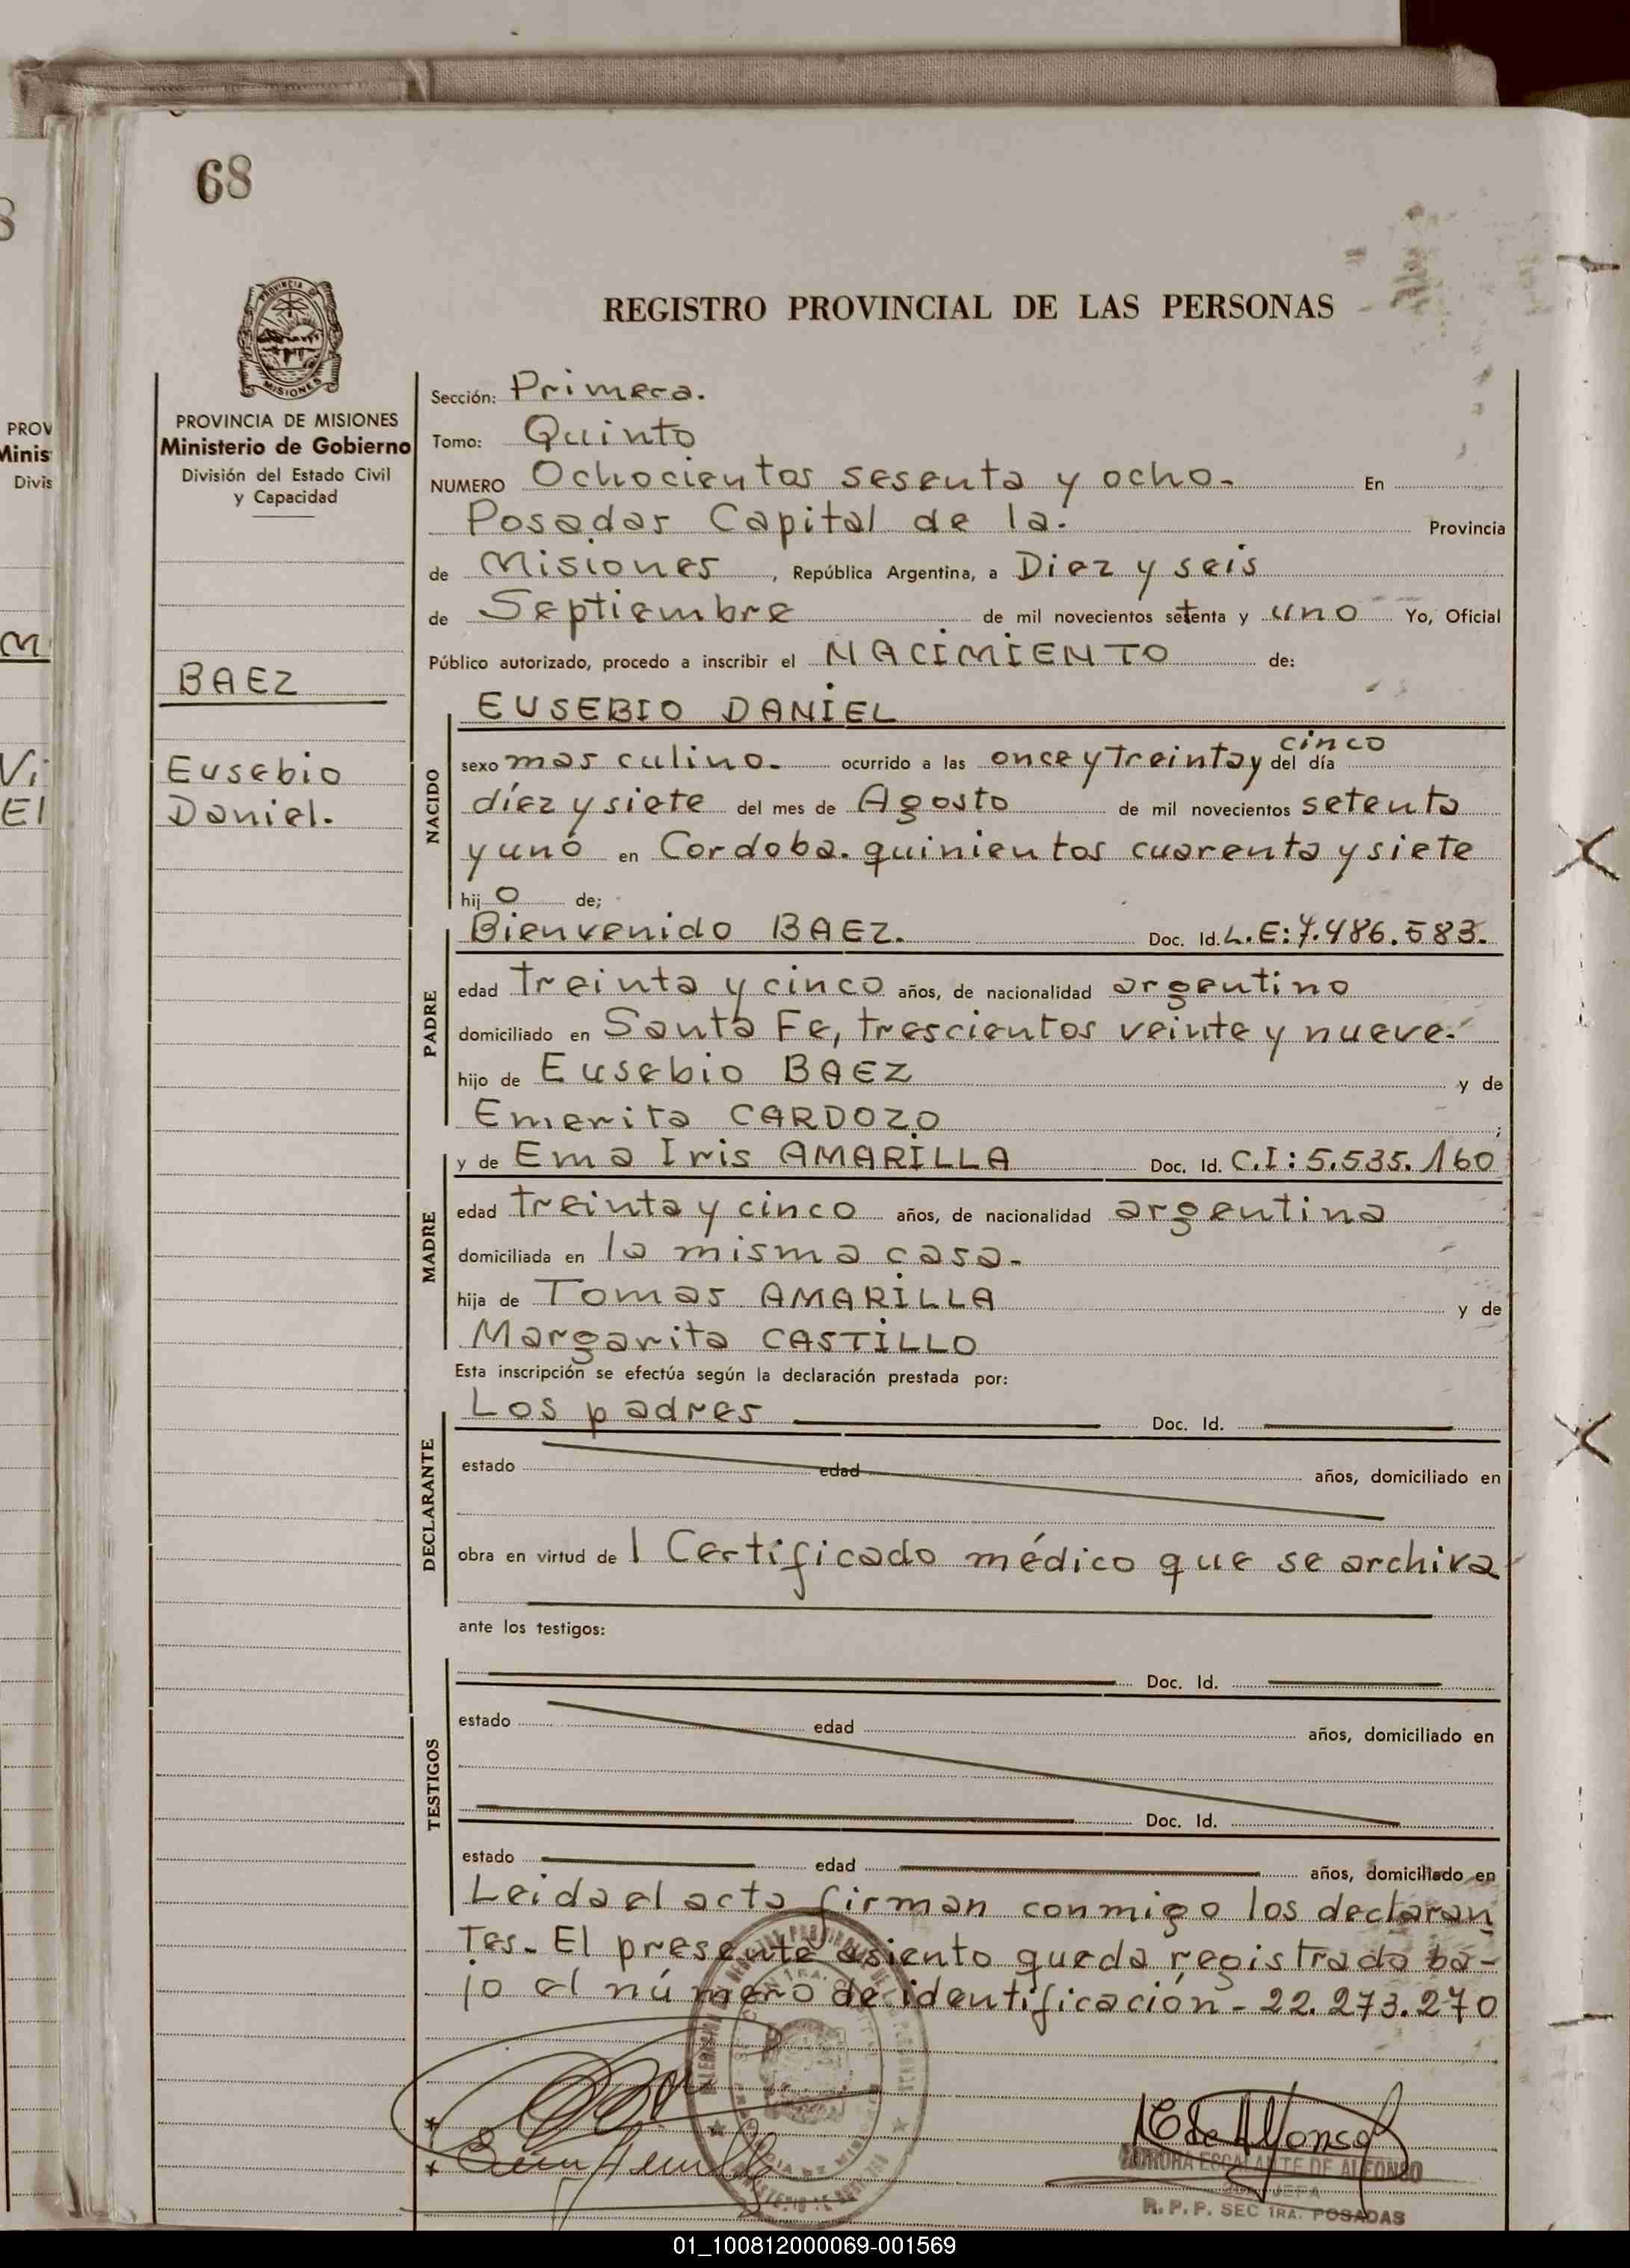 68
8
REGISTRO PROVINCIAL DE LAS PERSONAS
PROVINCIA DE MISIONES
Ministerio de Gobierno
División del Estado Civil
y Capacidad
PROV
Minis
Divis
M
Vi
El
BAEZ
Eusebio
Daniel.
Sección: Primera.
Tomo: Quinto
NUMERO Ochocientos sesenta y ocho. En
Posadas Capital de la. Provincia
de Misiones, República Argentina, a Diez y seis
de Septiembre de mil novecientos setenta y uno Yo, Oficial
Público autorizado, procedo a inscribir el NACIMIENTO de:
EUSEBIO DANIEL
NACIDO
cinco
sexo masculino. ocurrido a las once y treinta y del día
díez y siete del mes de Agosto de mil novecientos setenta
y uno en Cordoba. quinientos cuarenta y siete
hijo de;
PADRE
Bienvenido BAEZ. Doc. Id. L.E: 7.486.583.
edad treinta y cinco años, de nacionalidad argentino
domiciliado en Santa Fe, trescientos veinte y nueve.
hijo de Eusebio BAEZ y de
Emerita CARDOZO ;
MADRE
y de Ema Iris AMARILLA Doc. Id. C.I: 5.535.160
edad treinta y cinco años, de nacionalidad argentina
domiciliada en la misma casa.
hija de Tomas AMARILLA y de
Margarita CASTILLO
Esta inscripción se efectúa según la declaración prestada por:
DECLARANTE
Los padres Doc. Id.
estado edad años, domiciliado en
obra en virtud de 1 Certificado médico que se archiva
ante los testigos:
TESTIGOS
Doc. Id.
estado edad años, domiciliado en
Doc. Id.
estado edad años, domiciliado en
Leida el acta firman conmigo los declaran
tes. El presente asiento queda registrado ba-
jo el número de identificación - 22.273.270
AURORA ESCALANTE DE ALFONSO
JEFA
R. P. P. SEC 1RA. POSADAS
01_100812000069-001569